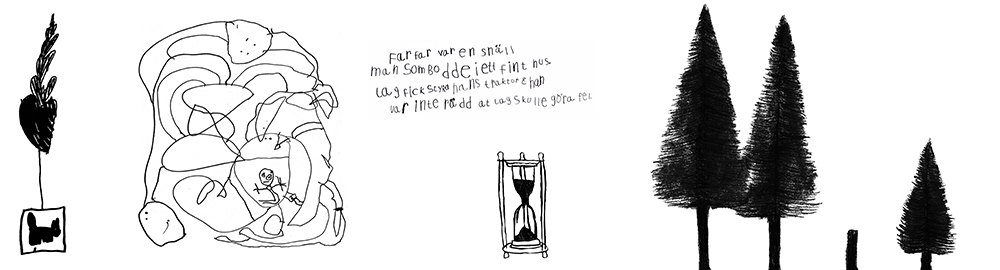 Farfar var en snäll
man Som bodde i ett fint hus
Lag fick styra hans traktor & han
var inte rädd at Lag skulle göra fel